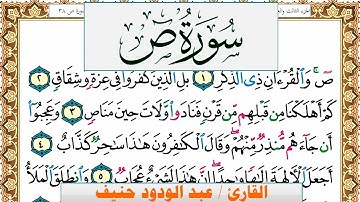 سورة ص
صٓ ۚ وَالْقُرْءَانِ ذِى الذِّكْرِ ١ بَلِ الَّذِينَ كَفَرُوا۟ فِى عِزَّةٍ وَشِقَاقٍ ٢
كَمْ أَهْلَكْنَا مِن قَبْلِهِم مِّن قَرْنٍ فَنَادَوا۟ وَّلَاتَ حِينَ مَنَاصٍ ٣ وَعَجِبُوٓا۟
أَن جَآءَهُم مُّنذِرٌ مِّنْهُمْ ۖ وَقَالَ الْكَٰفِرُونَ هَٰذَا سَٰحِرٌ كَذَّابٌ ٤
أَجَعَلَ الْءَالِهَةَ إِلَٰهًا وَٰحِدًا ۖ إِنَّ هَٰذَا لَشَىْءٌ عُجَابٌ ٥ وَانطَلَقَ الْمَلَأُ
القارئ / عبد الودود حنيف